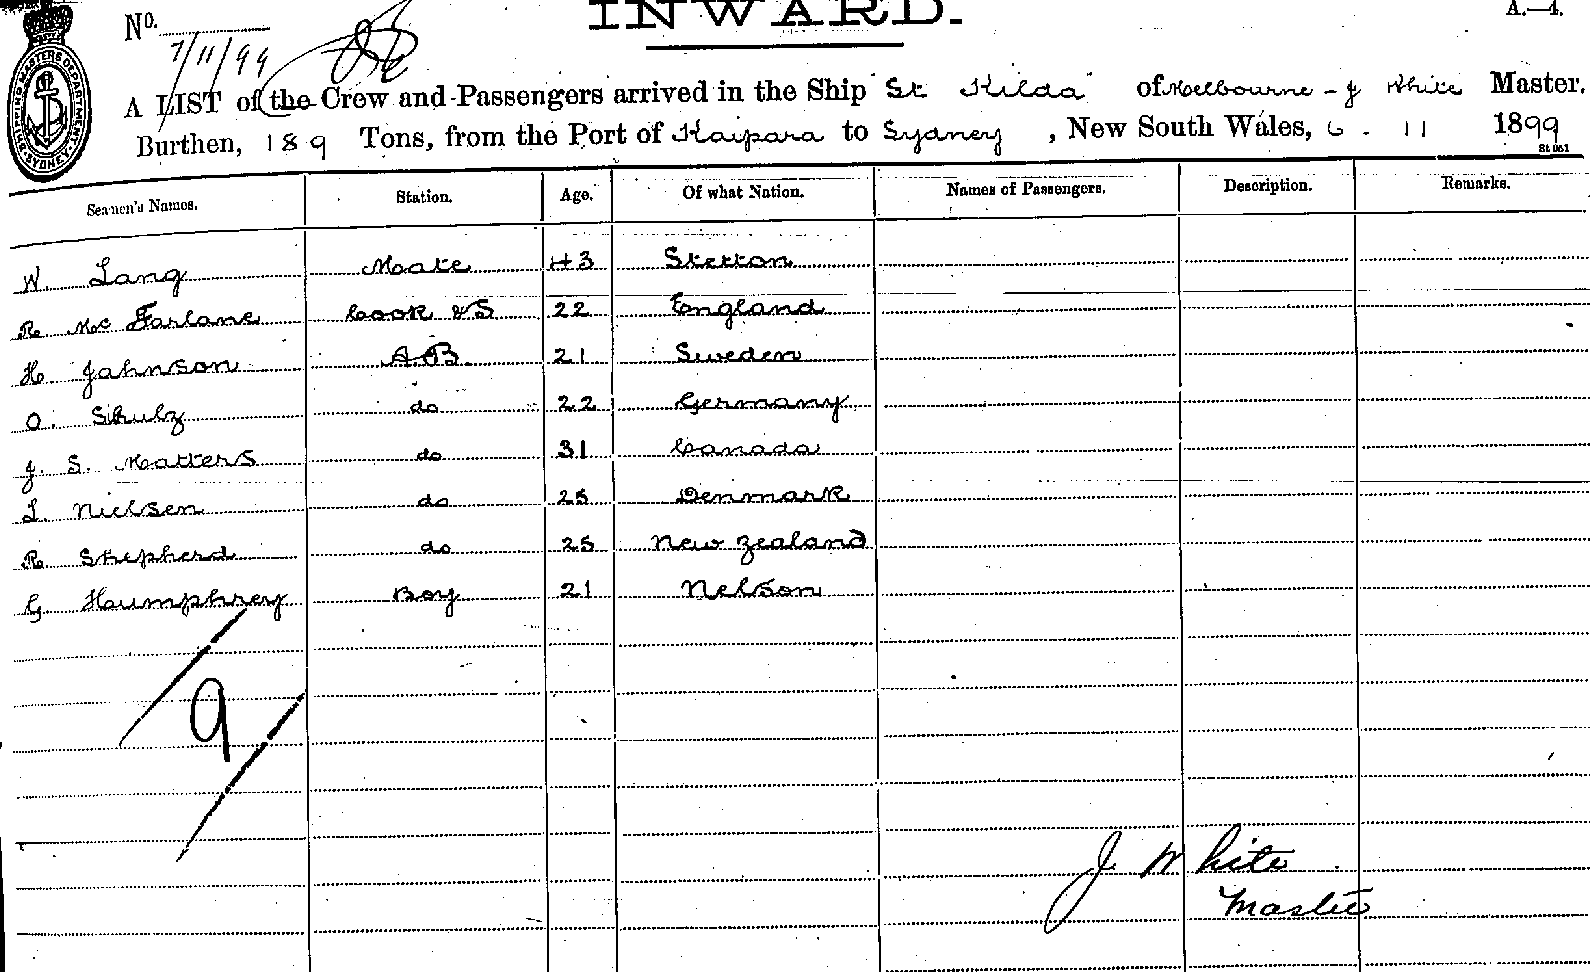 INWARD.
A.—4.
No.
7/11/99
SHIPPING MASTERS DEPARTMENT SYDNEY
A LIST of the Crew and Passengers arrived in the Ship "St Kilda" of Melbourne - J White Master,
Burthen, 189 Tons, from the Port of Kaipara to Sydney, New South Wales, 6 . 11 1899
St 951
Seamen's Names. Station. Age. Of what Nation. Names of Passengers. Description. Remarks.
W. Lang Mate 43 Stetton
R. McFarlane Cook & S 22 England
H. Jahnson A.B. 21 Sweden
O. Shulz do 22 Germany
J. S. Matters do 31 Canada
L. Nielsen do 25 Denmark
R. Shepherd do 25 New Zealand
G. Humphrey Boy 21 Nelson
9
J White
Master